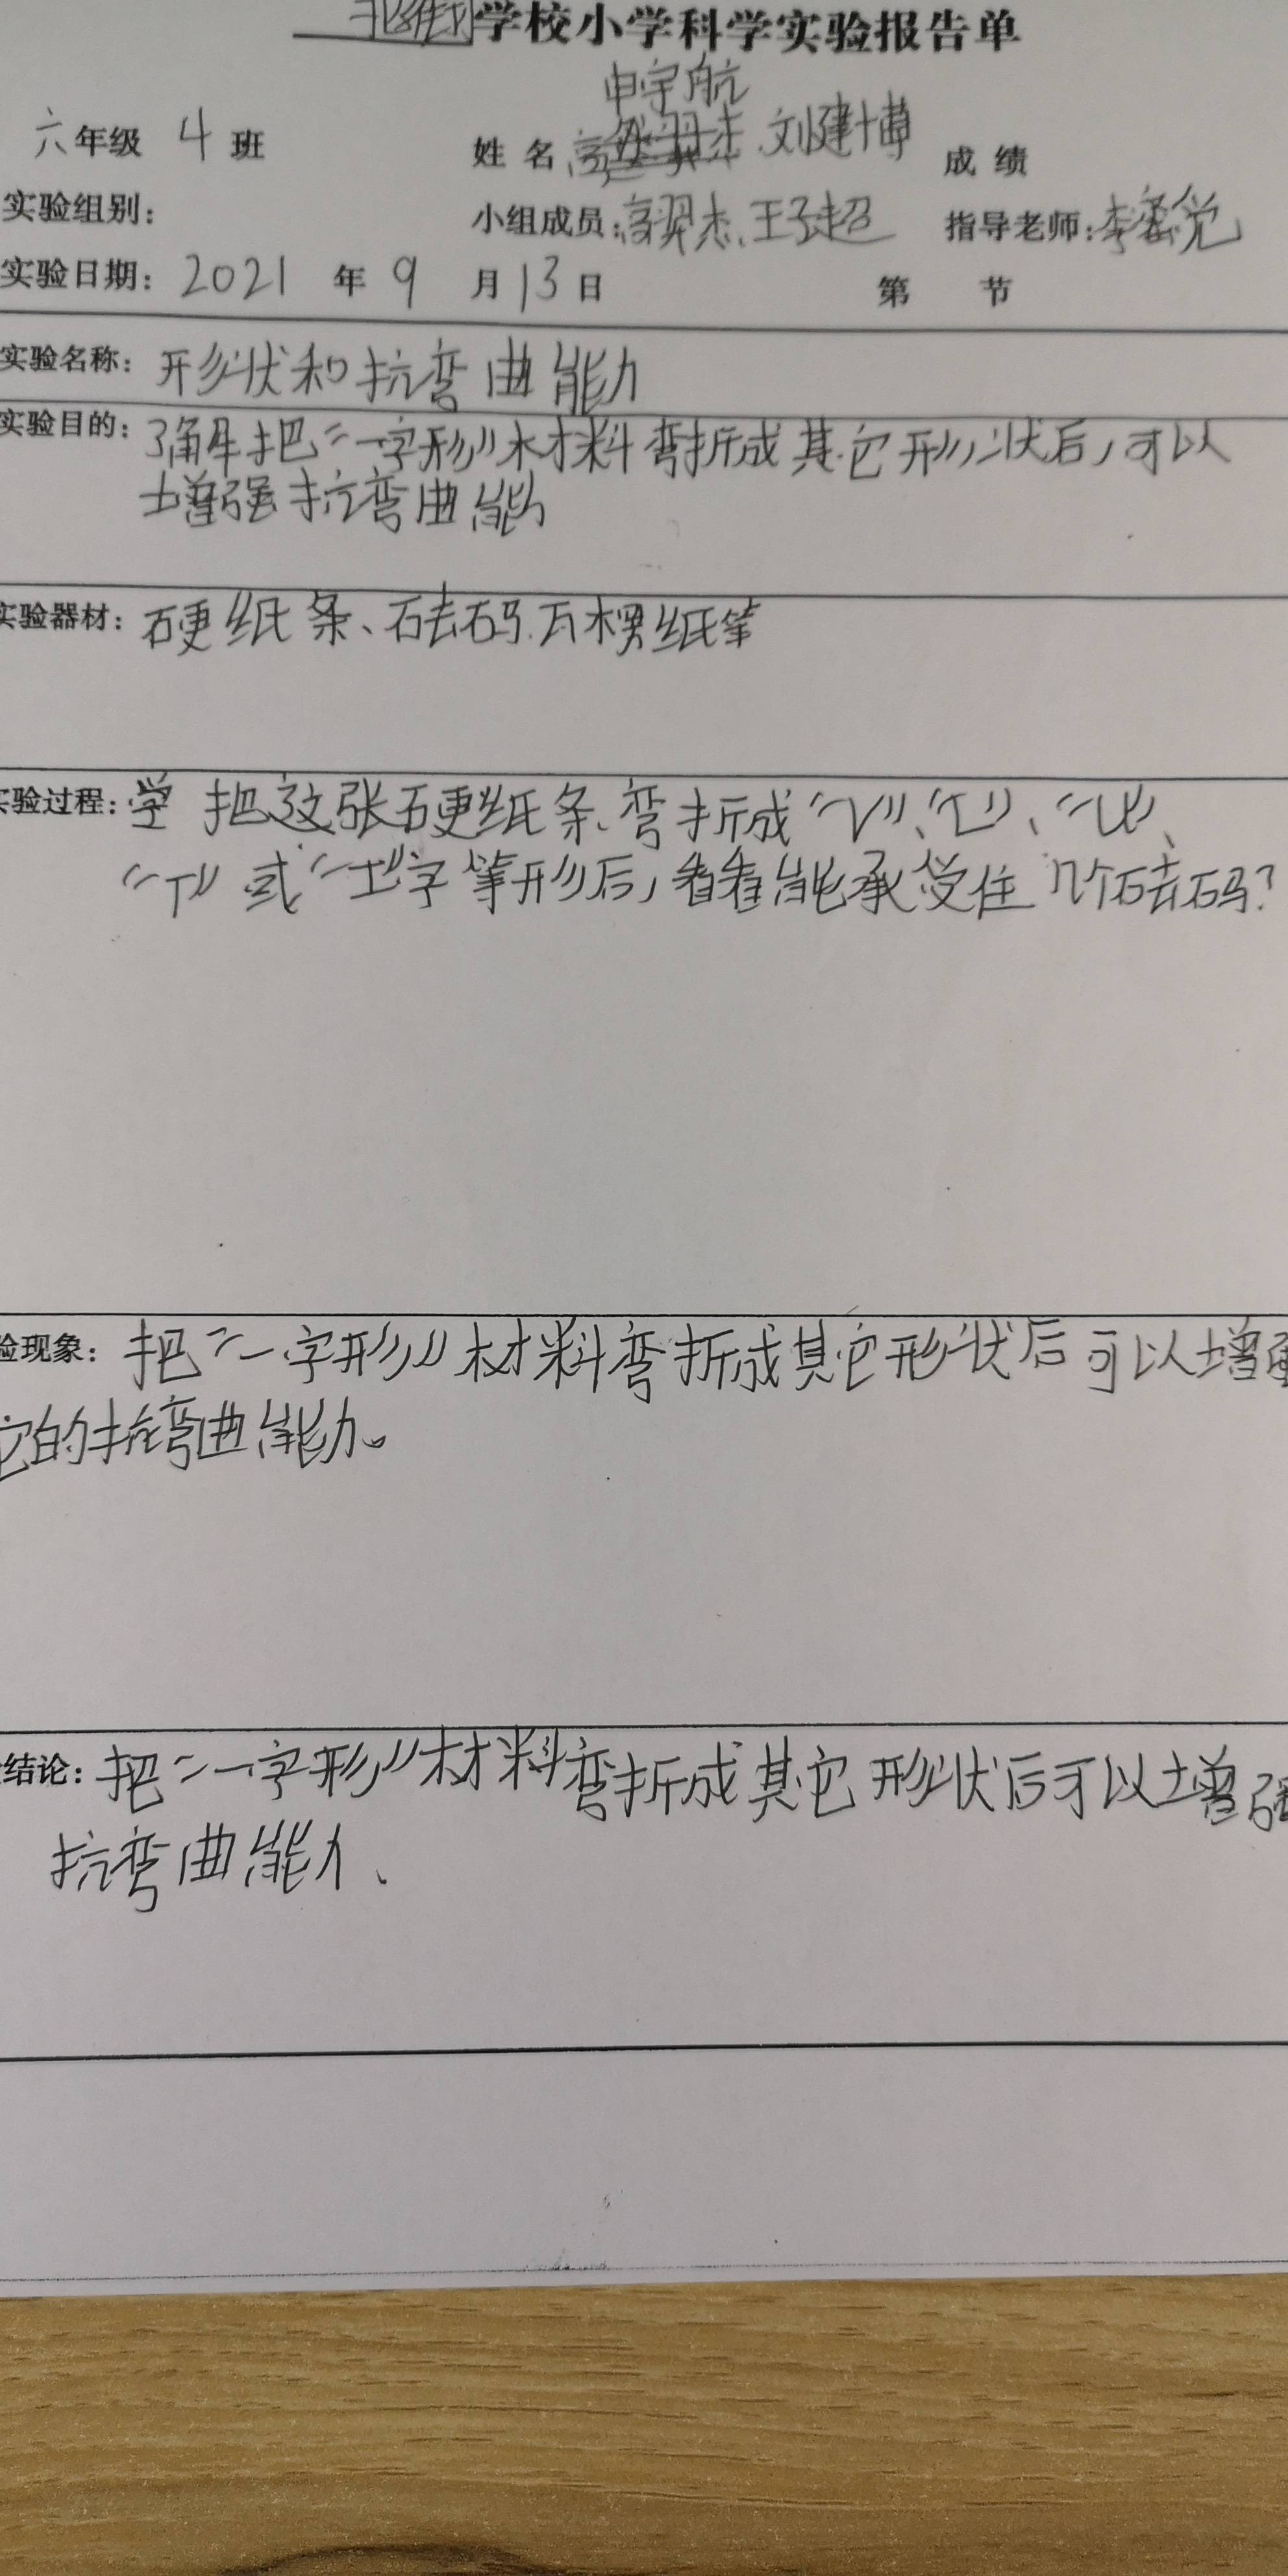 学校小学科学实验报告单
申宇航
六年级 4 班 姓名 刘建博 成绩
实验组别: 小组成员:高羿杰、王子超 指导老师:李
实验日期: 2021 年 9 月 13 日 第 节
实验名称: 形状和抗弯曲能力
实验目的: 了解把“一字形”材料弯折成其它形状后,可以
增强抗弯曲能
实验器材: 硬纸条、砝码、瓦楞纸等
实验过程: 把这张硬纸条、弯折成“V”、“L”、“U”、
“T”或“工”字等形后,看看能承受住几个砝码?
验现象: 把“一字形”材料弯折成其它形状后可以增强
它的抗弯曲能力。
结论: 把“一字形”材料弯折成其它形状后可以增强
抗弯曲能力、